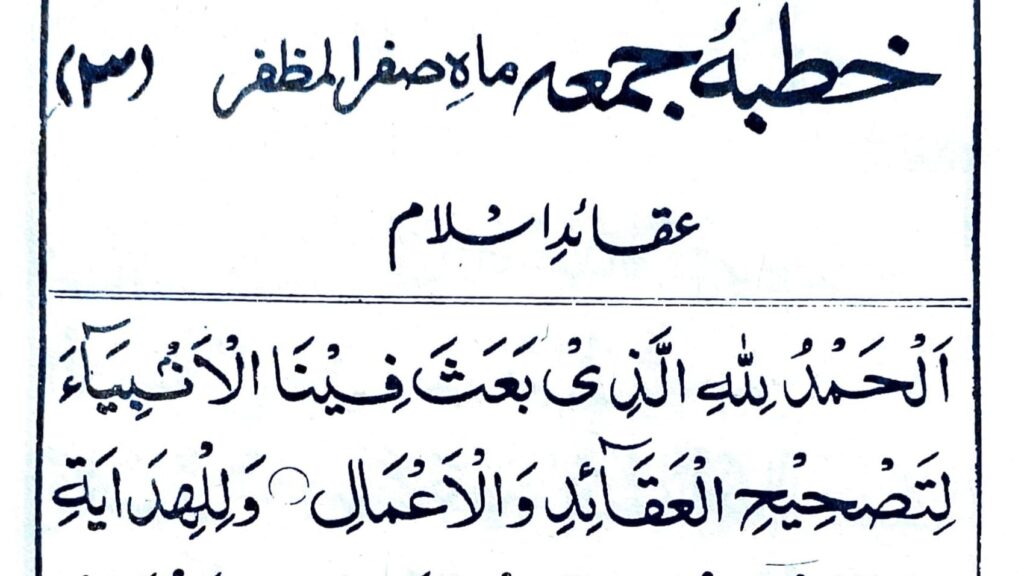 خطبۂ جمعہ ماہِ صفر المظفر (۳)
عقائدِ اسلام
اَلْحَمْدُ لِلّٰهِ الَّذِىْ بَعَثَ فِيْنَا الْاَنْۢبِيَآءَ
لِتَصْحِيْحِ الْعَقَآئِدِ وَالْاَعْمَالِ ○ وَلِلْهِدَايَةِ